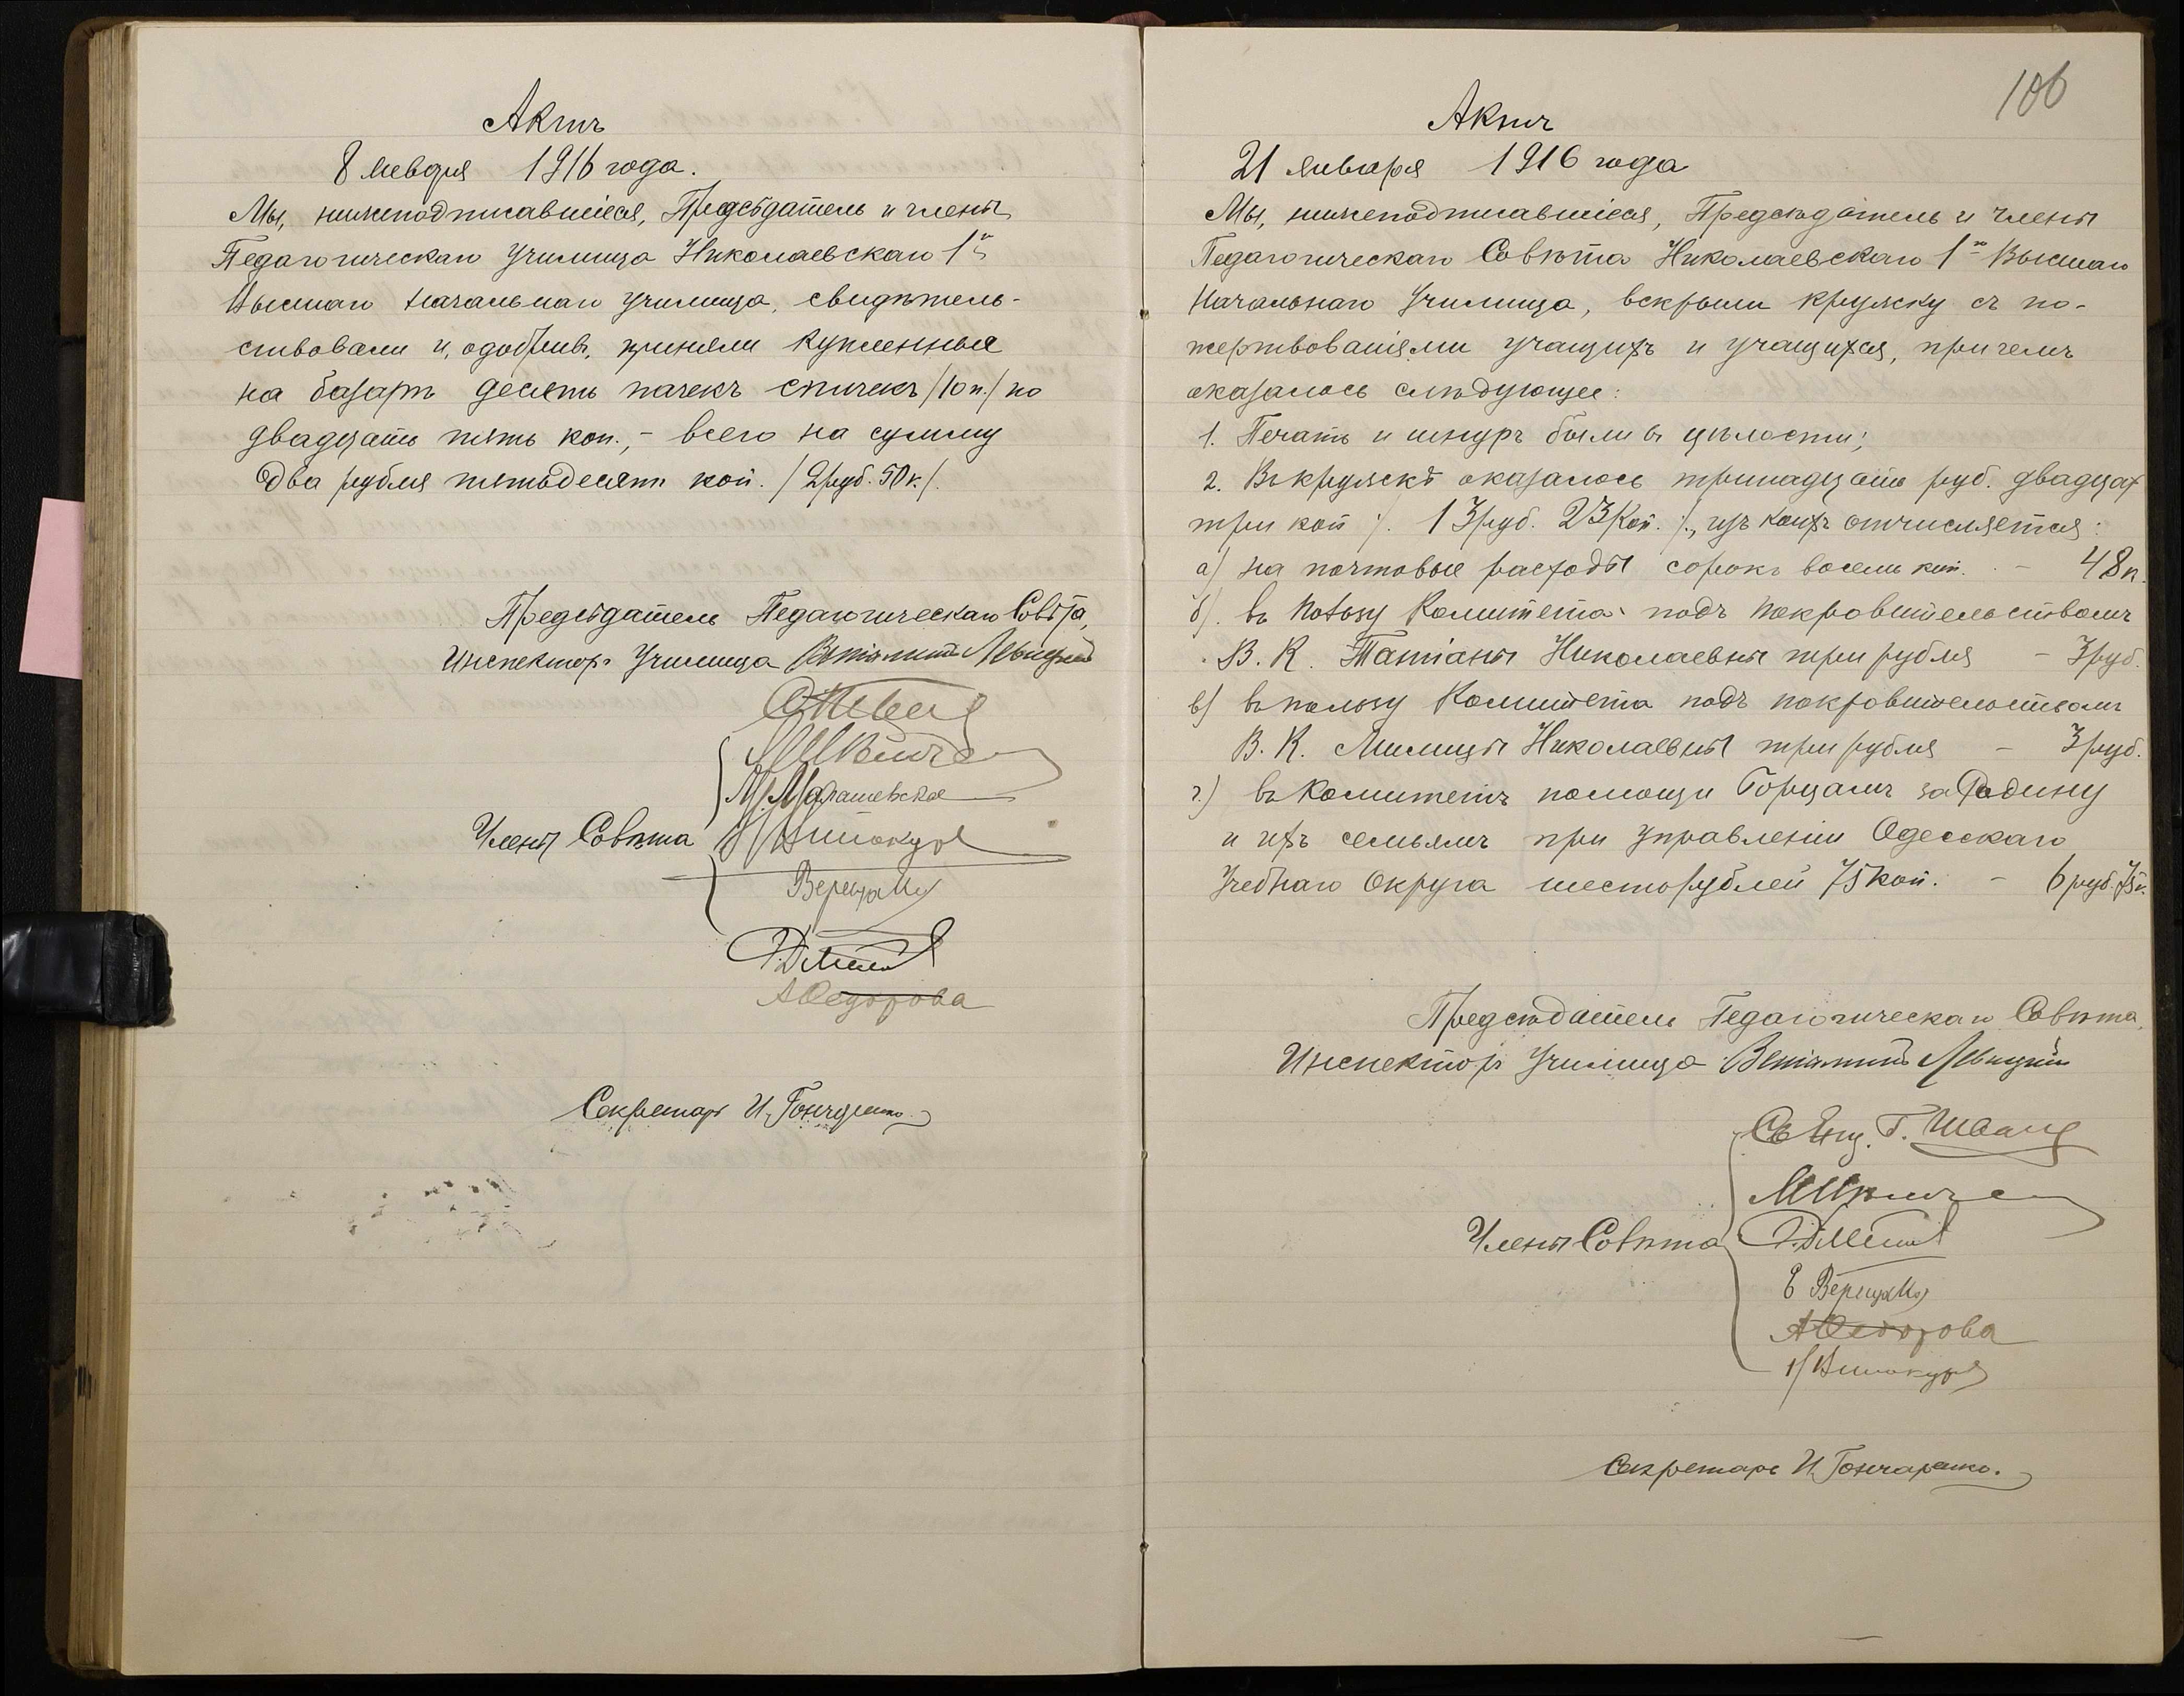 Актъ
8 января 1916 года.
Мы, нижеподписавшіеся, Предсѣдатель и члены
Педагогическаго Училища Николаевскаго 1го
Высшаго Начальнаго училища, свидѣтель-
ствовали и, одобривъ, приняли купленныя
на базарѣ десять пачекъ спичекъ /10 п./ по
двадцать пять коп., - всего на сумму
два рубля пятьдесятъ коп. / 2 руб. 50 к./.
Предсѣдатель Педагогическаго Совѣта,
Инспекторъ Училища Веніаминъ Левицкій
Члены Совѣта
М. Марашевская
Винокуръ
Верещака
АѲедорова
Секретарь И. Гончаренко.
106
Актъ
21 января 1916 года
Мы, нижеподписавшіеся, Предсѣдатель и члены
Педагогическаго Совѣта Николаевскаго 1го Высшаго
Начальнаго Училища, вскрыли кружку съ по-
жертвованіями учащихъ и учащихся, при чемъ
оказалось слѣдующее:
1. Печать и шнуръ были въ цѣлости;
2. Въ кружкѣ оказалось тринадцать руб. двадцат
три коп /. 13 руб. 23 коп. /., изъ коихъ отчисляется:
а) на почтовые расходы сорокъ восемь коп. - 48 к.
б). въ пользу Комитета подъ покровительствомъ
В. К. Татіаны Николаевны три рубля - 3 руб.
в) въ пользу Комитета подъ покровительствомъ
В. К. Милицы Николаевны три рубля - 3 руб.
г.) въ Комитетъ помощи Борцамъ за Родину
и ихъ семьямъ при Управленіи Одесскаго
Учебнаго Округа шесть рублей 75 коп. - 6 руб. 75 к.
Предсѣдатель Педагогическаго Совѣта,
Инспекторъ Училища Веніаминъ Левицкій
Свящ. Г. Швецъ
Члены Совѣта
Е Верещака
АѲедорова
Винокуръ
Секретарь И. Гончаренко.